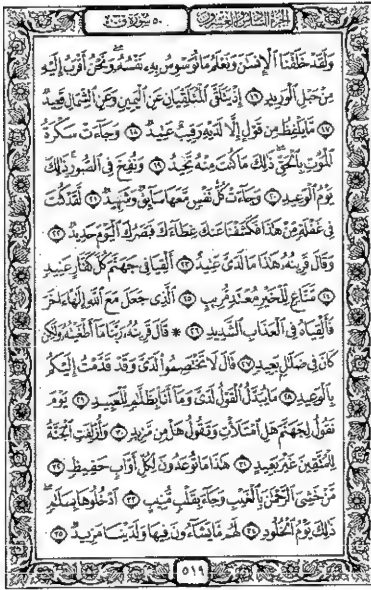 الجزء السادس والعشرون ٥٠ سورة ق
وَلَقَدْ خَلَقْنَا ٱلْإِنسَٰنَ وَنَعْلَمُ مَا تُوَسْوِسُ بِهِۦ نَفْسُهُۥ ۖ وَنَحْنُ أَقْرَبُ إِلَيْهِ
مِنْ حَبْلِ ٱلْوَرِيدِ ١٦ إِذْ يَتَلَقَّى ٱلْمُتَلَقِّيَانِ عَنِ ٱلْيَمِينِ وَعَنِ ٱلشِّمَالِ قَعِيدٌ
١٧ مَّا يَلْفِظُ مِن قَوْلٍ إِلَّا لَدَيْهِ رَقِيبٌ عَتِيدٌ ١٨ وَجَآءَتْ سَكْرَةُ
ٱلْمَوْتِ بِٱلْحَقِّ ۖ ذَٰلِكَ مَا كُنتَ مِنْهُ تَحِيدُ ١٩ وَنُفِخَ فِى ٱلصُّورِ ۚ ذَٰلِكَ
يَوْمُ ٱلْوَعِيدِ ٢٠ وَجَآءَتْ كُلُّ نَفْسٍ مَّعَهَا سَآئِقٌ وَشَهِيدٌ ٢١ لَّقَدْ كُنتَ
فِى غَفْلَةٍ مِّنْ هَٰذَا فَكَشَفْنَا عَنكَ غِطَآءَكَ فَبَصَرُكَ ٱلْيَوْمَ حَدِيدٌ ٢٢
وَقَالَ قَرِينُهُۥ هَٰذَا مَا لَدَىَّ عَتِيدٌ ٢٣ أَلْقِيَا فِى جَهَنَّمَ كُلَّ كَفَّارٍ عَنِيدٍ
٢٤ مَّنَّاعٍ لِّلْخَيْرِ مُعْتَدٍ مُّرِيبٍ ٢٥ ٱلَّذِى جَعَلَ مَعَ ٱللَّهِ إِلَٰهًا ءَاخَرَ
فَأَلْقِيَاهُ فِى ٱلْعَذَابِ ٱلشَّدِيدِ ٢٦ * قَالَ قَرِينُهُۥ رَبَّنَا مَآ أَطْغَيْتُهُۥ وَلَٰكِن
كَانَ فِى ضَلَٰلٍۭ بَعِيدٍ ٢٧ قَالَ لَا تَخْتَصِمُوا۟ لَدَىَّ وَقَدْ قَدَّمْتُ إِلَيْكُم
بِٱلْوَعِيدِ ٢٨ مَا يُبَدَّلُ ٱلْقَوْلُ لَدَىَّ وَمَآ أَنَا۠ بِظَلَّٰمٍ لِّلْعَبِيدِ ٢٩ يَوْمَ
نَقُولُ لِجَهَنَّمَ هَلِ ٱمْتَلَأْتِ وَتَقُولُ هَلْ مِن مَّزِيدٍ ٣٠ وَأُزْلِفَتِ ٱلْجَنَّةُ
لِلْمُتَّقِينَ غَيْرَ بَعِيدٍ ٣١ هَٰذَا مَا تُوعَدُونَ لِكُلِّ أَوَّابٍ حَفِيظٍ ٣٢
مَّنْ خَشِىَ ٱلرَّحْمَٰنَ بِٱلْغَيْبِ وَجَآءَ بِقَلْبٍ مُّنِيبٍ ٣٣ ٱدْخُلُوهَا بِسَلَٰمٍ ۖ
ذَٰلِكَ يَوْمُ ٱلْخُلُودِ ٣٤ لَهُم مَّا يَشَآءُونَ فِيهَا وَلَدَيْنَا مَزِيدٌ ٣٥
٥١٩